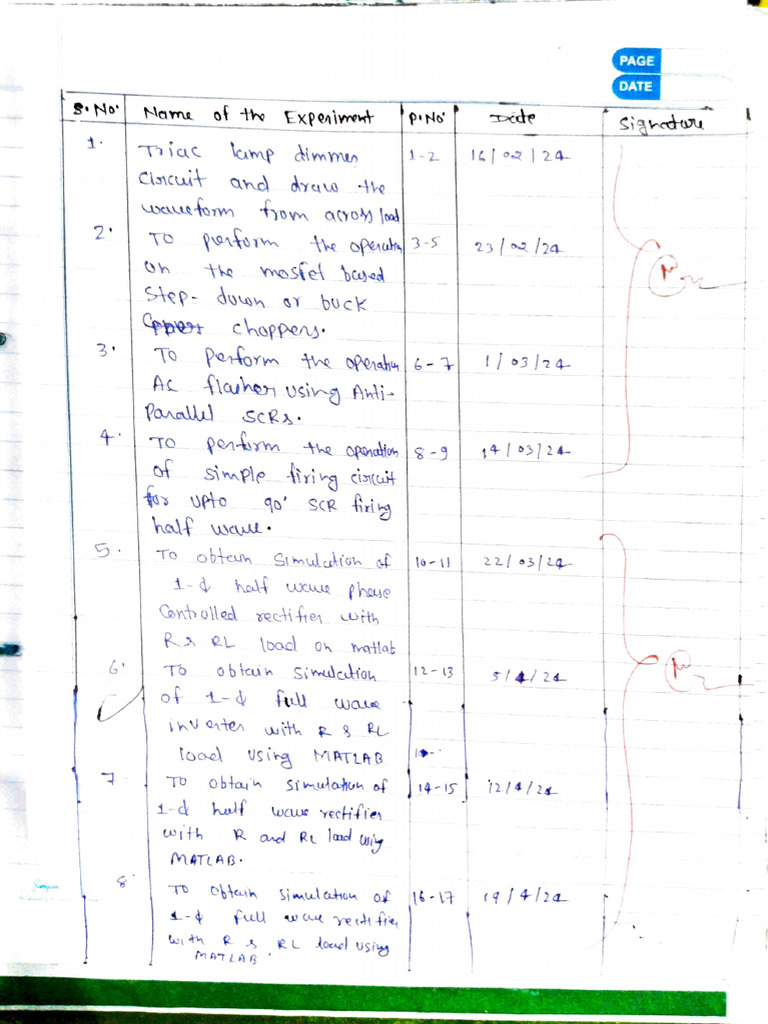 PAGE
DATE
S.No. Name of the Experiment P.No. Date Signature
1. Triac lamp dimmer 1-2 16/02/24
circuit and draw the
waveform from across load
2. To perform the operation 3-5 23/02/24
on the mosfet based
Step-down or buck
choppers.
3. To perform the operation 6-7 1/03/24
AC flasher using Anti-
Parallel SCRs.
4. To perform the operation 8-9 14/03/24
of simple firing circuit
for upto 90° SCR firing
half wave.
5. To obtain simulation of 10-11 22/03/24
1-ɸ half wave phase
controlled rectifier with
R & RL load on matlab
6. To obtain simulation 12-13 5/4/24
of 1-ɸ full wave
inverter with R & RL
load using MATLAB
7. To obtain simulation of 14-15 12/4/24
1-ɸ half wave rectifier
with R and RL load using
MATLAB.
8. To obtain simulation of 16-17 19/4/24
1-ɸ full wave rectifier
with R & RL load using
MATLAB.